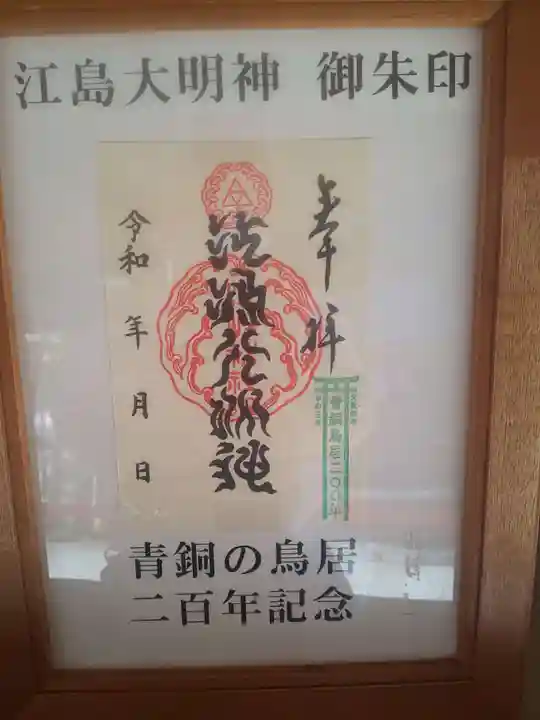 江島大明神 御朱印
奉拝
江島大明神
令和 年 月 日
青銅鳥居二〇〇年
青銅の鳥居
二百年記念